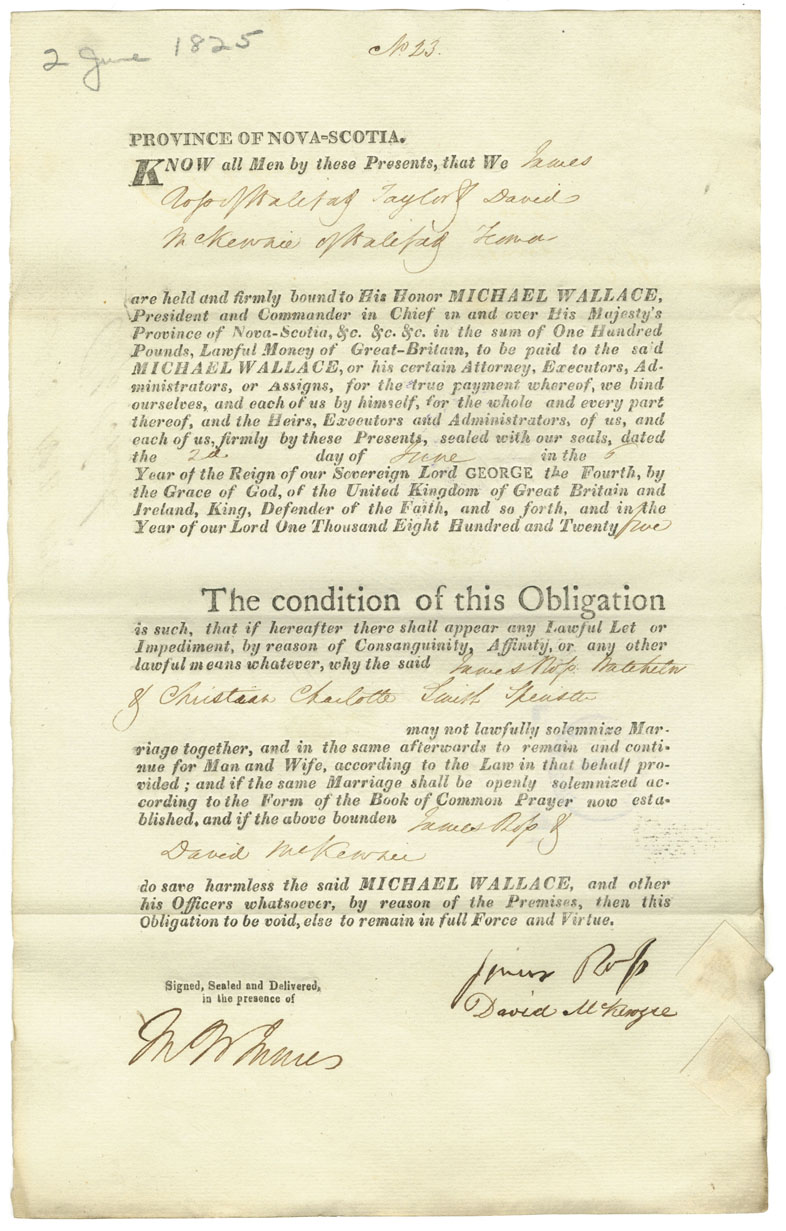 2 June 1825
No 23.
PROVINCE OF NOVA-SCOTIA.
KNOW all Men by these Presents, that We James
Ross of Halifax Taylor & David
McKenzie of Halifax
are held and firmly bound to His Honor MICHAEL WALLACE,
President and Commander in Chief in and over His Majesty's
Province of Nova-Scotia, &c. &c. &c. in the sum of One Hundred
Pounds, Lawful Money of Great-Britain, to be paid to the said
MICHAEL WALLACE, or his certain Attorney, Executors, Ad-
ministrators, or Assigns, for the true payment whereof, we bind
ourselves, and each of us by himself, for the whole and every part
thereof, and the Heirs, Executors and Administrators, of us, and
each of us, firmly by these Presents, sealed with our seals, dated
the 2d day of June in the 6
Year of the Reign of our Sovereign Lord GEORGE the Fourth, by
the Grace of God, of the United Kingdom of Great Britain and
Ireland, King, Defender of the Faith, and so forth, and in the
Year of our Lord One Thousand Eight Hundred and Twenty five
The condition of this Obligation
is such, that if hereafter there shall appear any Lawful Let or
Impediment, by reason of Consanguinity, Affinity, or any other
lawful means whatever, why the said James Ross Batchelor
& Christian Charlotte Smith Spinster
may not lawfully solemnize Mar-
riage together, and in the same afterwards to remain and conti-
nue for Man and Wife, according to the Law in that behalf pro-
vided ; and if the same Marriage shall be openly solemnized ac-
cording to the Form of the Book of Common Prayer now esta-
blished, and if the above bounden James Ross &
David McKenzie
do save harmless the said MICHAEL WALLACE, and other
his Officers whatsoever, by reason of the Premises, then this
Obligation to be void, else to remain in full Force and Virtue.
James Ross
David McKenzie
Signed, Sealed and Delivered,
in the presence of